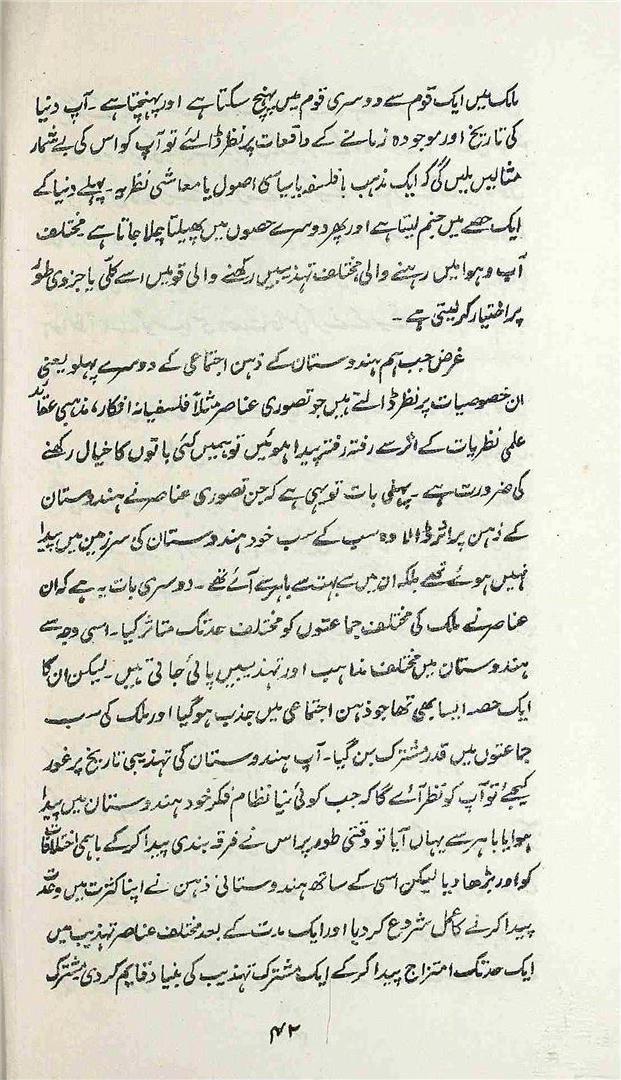 ملک میں ایک قوم سے دوسری قوم میں پہنچ سکتا ہے اور پہنچتا ہے ۔ آپ دنیا
کی تاریخ اور موجودہ زمانے کے واقعات پر نظر ڈالئے تو آپ کو اس کی بے شمار
مثالیں ملیں گی کہ ایک مذہب یا فلسفہ یا سیاسی اصول یا معاشی نظریہ ۔ پہلے دنیا کے
ایک حصے میں جنم لیتا ہے اور پھر دوسرے حصوں میں پھیلتا چلا جاتا ہے مختلف
آب و ہوا میں رہنے والی مختلف تہذیبیں رکھنے والی قومیں اسے کلّی یا جزوی طور
پر اختیار کر لیتی ہے ۔
غرض جب ہم ہندوستان کے ذہن اجتماعی کے دوسرے پہلو یعنی
ان خصوصیات پر نظر ڈالتے ہیں جو تصوری عناصر مثلاً فلسفیانہ افکار، مذہبی عقائد
علمی نظریات کے اثر سے رفتہ رفتہ پیدا ہوئیں تو ہمیں کئی باتوں کا خیال رکھنے
کی ضرورت ہے ۔ پہلی بات تو یہی ہے کہ جن تصوری عناصر نے ہندوستان
کے ذہن پر اثر ڈالا وہ سب کے سب خود ہندوستان کی سرزمین میں پیدا
نہیں ہوئے تھے بلکہ ان میں سے بہت سے باہر سے آئے تھے ۔ دوسری بات یہ ہے کہ ان
عناصر نے ملک کی مختلف جماعتوں کو مختلف حد تک متاثر کیا ۔ اسی وجہ سے
ہندوستان میں مختلف مذاہب اور تہذیبیں پائی جاتی ہیں ۔ لیکن ان کا
ایک حصہ ایسا بھی تھا جو ذہن اجتماعی میں جذب ہو گیا اور ملک کی سب
جماعتوں میں قدر مشترک بن گیا ۔ آپ ہندوستان کی تہذیبی تاریخ پر غور
کیجئے تو آپ کو نظر آئے گا کہ جب کوئی نیا نظام فکر خود ہندوستان میں پیدا
ہوا یا باہر سے یہاں آیا تو وقتی طور پر اس نے فرقہ بندی پیدا کر کے باہمی اختلافات
کو اور بڑھا دیا لیکن اسی کے ساتھ ہندوستانی ذہن نے اپنا کثرت میں وحدت
پیدا کرنے کا عمل شروع کر دیا اور ایک مدت کے بعد مختلف عناصر تہذیب میں
ایک حد تک امتزاج پیدا کر کے ایک مشترک تہذیب کی بنیاد قایم کر دی مشترک
۴۲